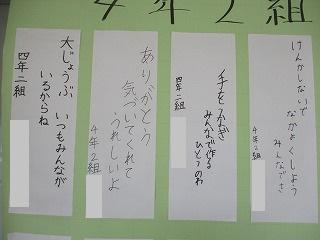 4年2組
けんかしないで
なかよくしよう
みんなでさ
4年2組
手をつなぎ
みんなで作る
ひとつのわ
四年二組
ありがとう
気づいてくれて
うれしいよ
4年2組
大じょうぶ
いつもみんなが
いるからね
四年二組